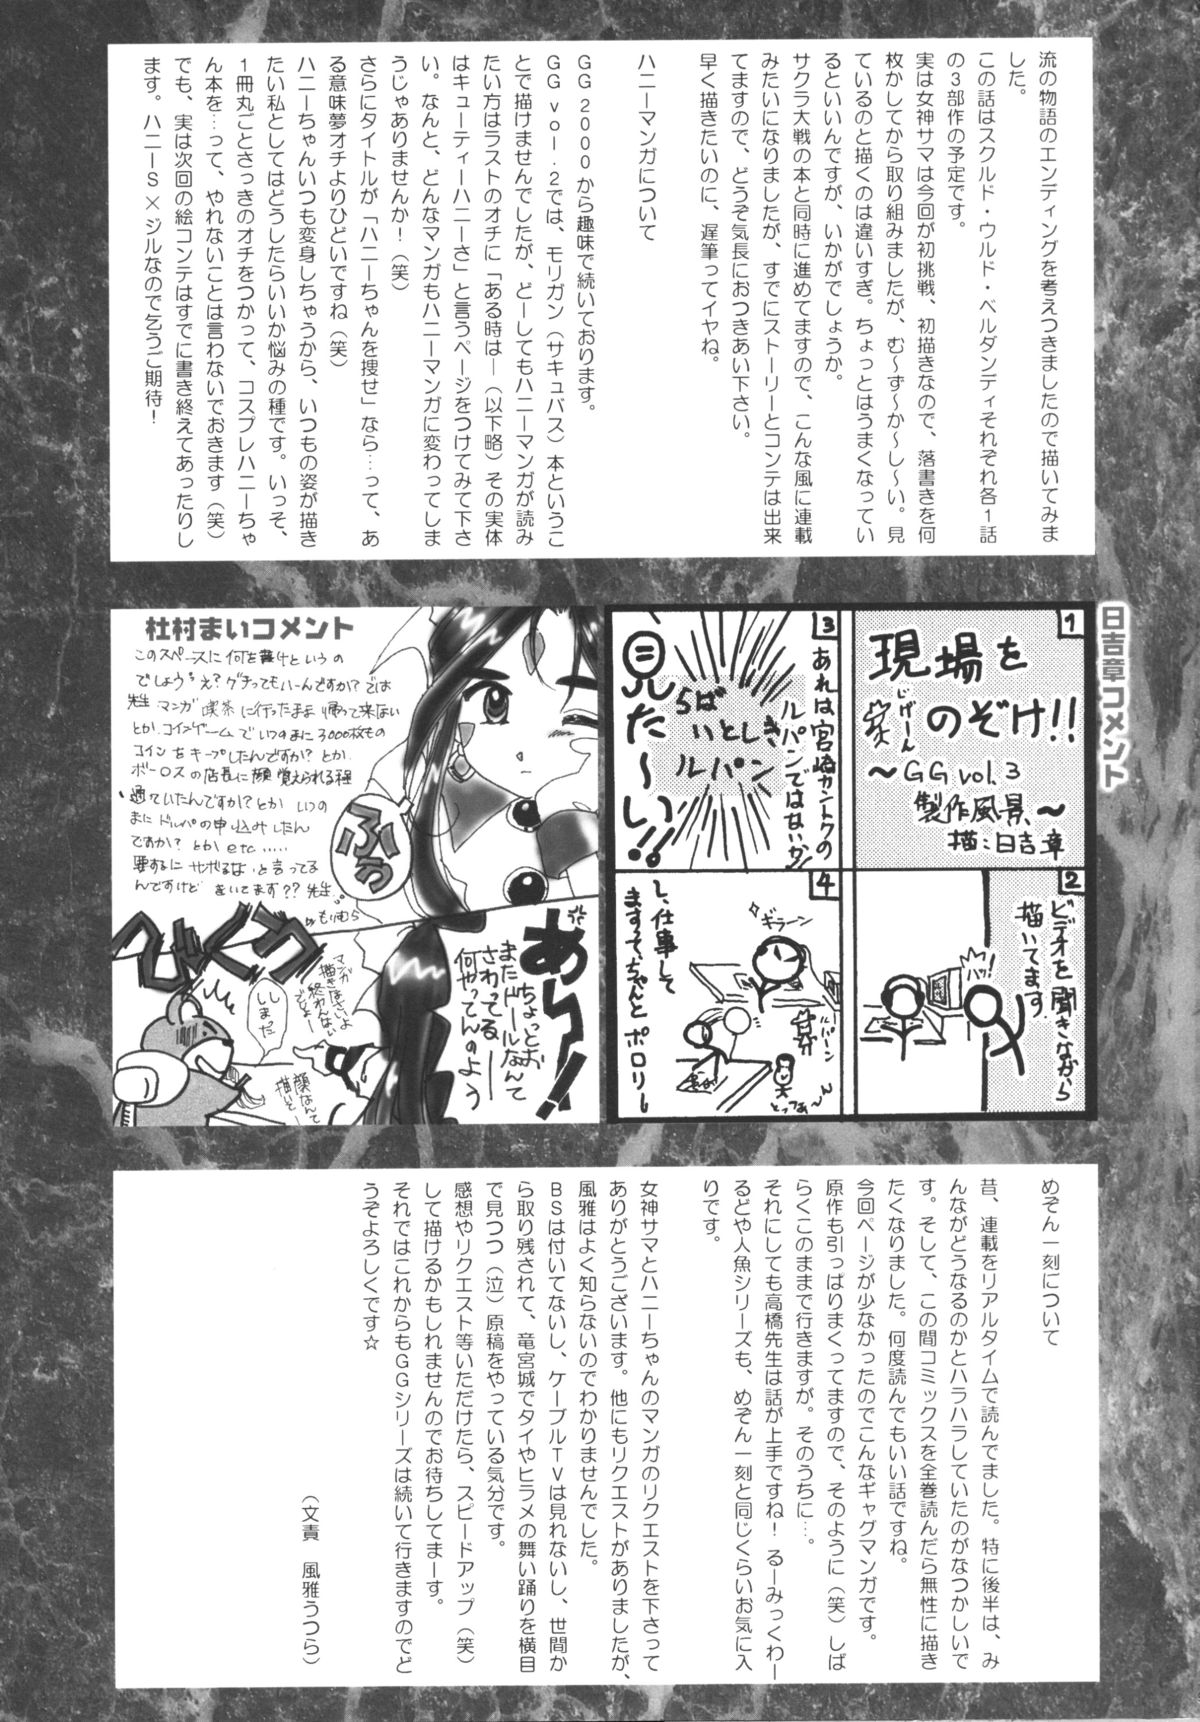 流の物語のエンディングを考えつきましたので描いてみま
した。
この話はスクルド・ウルド・ベルダンディそれぞれ各1話
の3部作の予定です。
実は女神サマは今回が初挑戦、初描きなので、落書きを何
枚かしてから取り組みましたが、む～ず～か～し～い。見
ているのと描くのは違いすぎ。ちょっとはうまくなってい
るといいんですが、いかがでしょうか。
サクラ大戦の本と同時に進めてますので、こんな風に連載
みたいになりましたが、すでにストーリーとコンテは出来
てますので、どうぞ気長におつきあい下さい。
早く描きたいのに、遅筆ってイヤね。
ハニーマンガについて
GG2000から趣味で続いております。
GGvol.2では、モリガン（サキュバス）本というこ
とで描けませんでしたが、どーしてもハニーマンガが読み
たい方はラストのオチに「ある時は―（以下略）その実体
はキューティーハニーさ」と言うページをつけてみて下さ
い。なんと、どんなマンガもハニーマンガに変わってしま
うじゃありませんか！（笑）
さらにタイトルが「ハニーちゃんを捜せ」なら…って、あ
る意味夢オチよりひどいですね（笑）
ハニーちゃんいつも変身しちゃうから、いつもの姿が描き
たい私としてはどうしたらいいか悩みの種です。いっそ、
1冊丸ごとさっきのオチをつかって、コスプレハニーちゃ
ん本を…って、やれないことは言わないでおきます（笑）
でも、実は次回の絵コンテはすでに書き終えてあったりし
ます。ハニーS×ジルなので乞うご期待！
日吉章コメント
1
現場を
のぞけ!!
じげーん
～GG vol.3
製作風景～
描：日吉章
2
ビデオを聞きながら
描いてます
バッ!
3
あれは宮崎カントクの
ルパンではないか
らば
いとしき
ルパン
見た～い!!
4
ギラーン
ルパーン
とっつぁ～ん
し、仕事して
ますって、ちゃんと ポロリー
杜村まいコメント
このスペースに何を書けというの
でしょうえ？グチってもいーんですか？では
先生 マンガ喫茶に行ったまま 帰って来ない
とか コインゲームでいつのまに3000枚もの
コインをキープしたんですか？とか
ボーロスの店長に顔覚えられる程
通っていたんですか？とか いつの
まにドルパの申込みしたん
ですか？ とか etc……
要するに サボるな と言ってる
んですけど きいてます？？先生。
by もりむら
ふぅ
あーっ!
ちょっとお
またドールなんて
さわってるー
何やってんのよう
びくっ
マンガ
描きなさいよ
終わんない
でしょー
しまった
顔なんて
描いて
めぞん一刻について
昔、連載をリアルタイムで読んでました。特に後半は、み
んながどうなるのかとハラハラしていたのがなつかしいで
す。そして、この間コミックスを全巻読んだら無性に描き
たくなりました。何度読んでもいい話ですね。
今回ページが少なかったのでこんなギャグマンガです。
原作も引っぱりまくってますので、そのように（笑）しば
らくこのままで行きますが。そのうちに…。
それにしても高橋先生は話が上手ですね！るーみっくわー
るどや人魚シリーズも、めぞん一刻と同じくらいお気に入
りです。
女神サマとハニーちゃんのマンガのリクエストを下さって
ありがとうございます。他にもリクエストがありましたが、
風雅はよく知らないのでわかりませんでした。
BSは付いてないし、ケーブルTVは見れないし、世間か
ら取り残されて、竜宮城でタイやヒラメの舞い踊りを横目
で見つつ（泣）原稿をやっている気分です。
感想やリクエスト等いただけたら、スピードアップ（笑）
して描けるかもしれませんのでお待ちしてまーす。
それではこれからもGGシリーズは続いて行きますのでど
うぞよろしくです☆
（文責　風雅うつら）